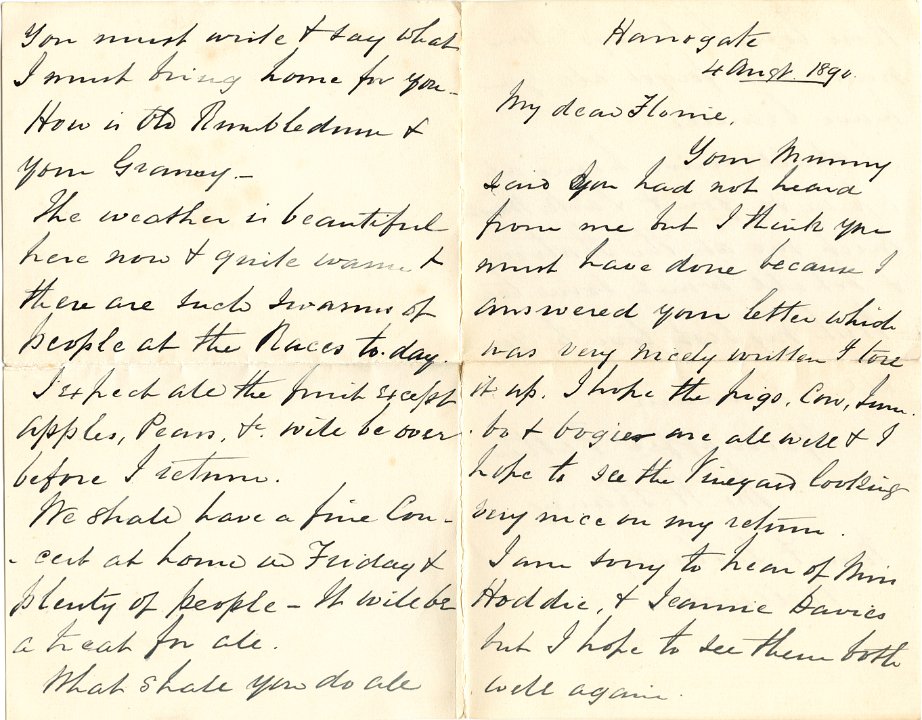 Harrogate
4 Augst. 1890.
My dear Florrie,
Your Mummy
said you had not heard
from me but I think you
must have done because I
answered your letter which
was very nicely written I tore
it up. I hope the pigs, Cow, Jum-
-bo & bogies are all well & I
hope to see the Vineyard looking
very nice on my return.
I am sorry to hear of Miss
Hoddie, & Jeannie Davies
but I hope to see them both
well again.
You must write & say what
I must bring home for you -
How is Old Rumbledum &
your Granny -
The weather is beautiful
here now & quite warm &
there are such swarms of
people at the Races to-day.
I expect all the fruit except
apples, Pears, &c. will be over
before I return.
We shall have a fine Con-
-cert at home on Friday &
plenty of people - It will be
a treat for all.
What shall you do all